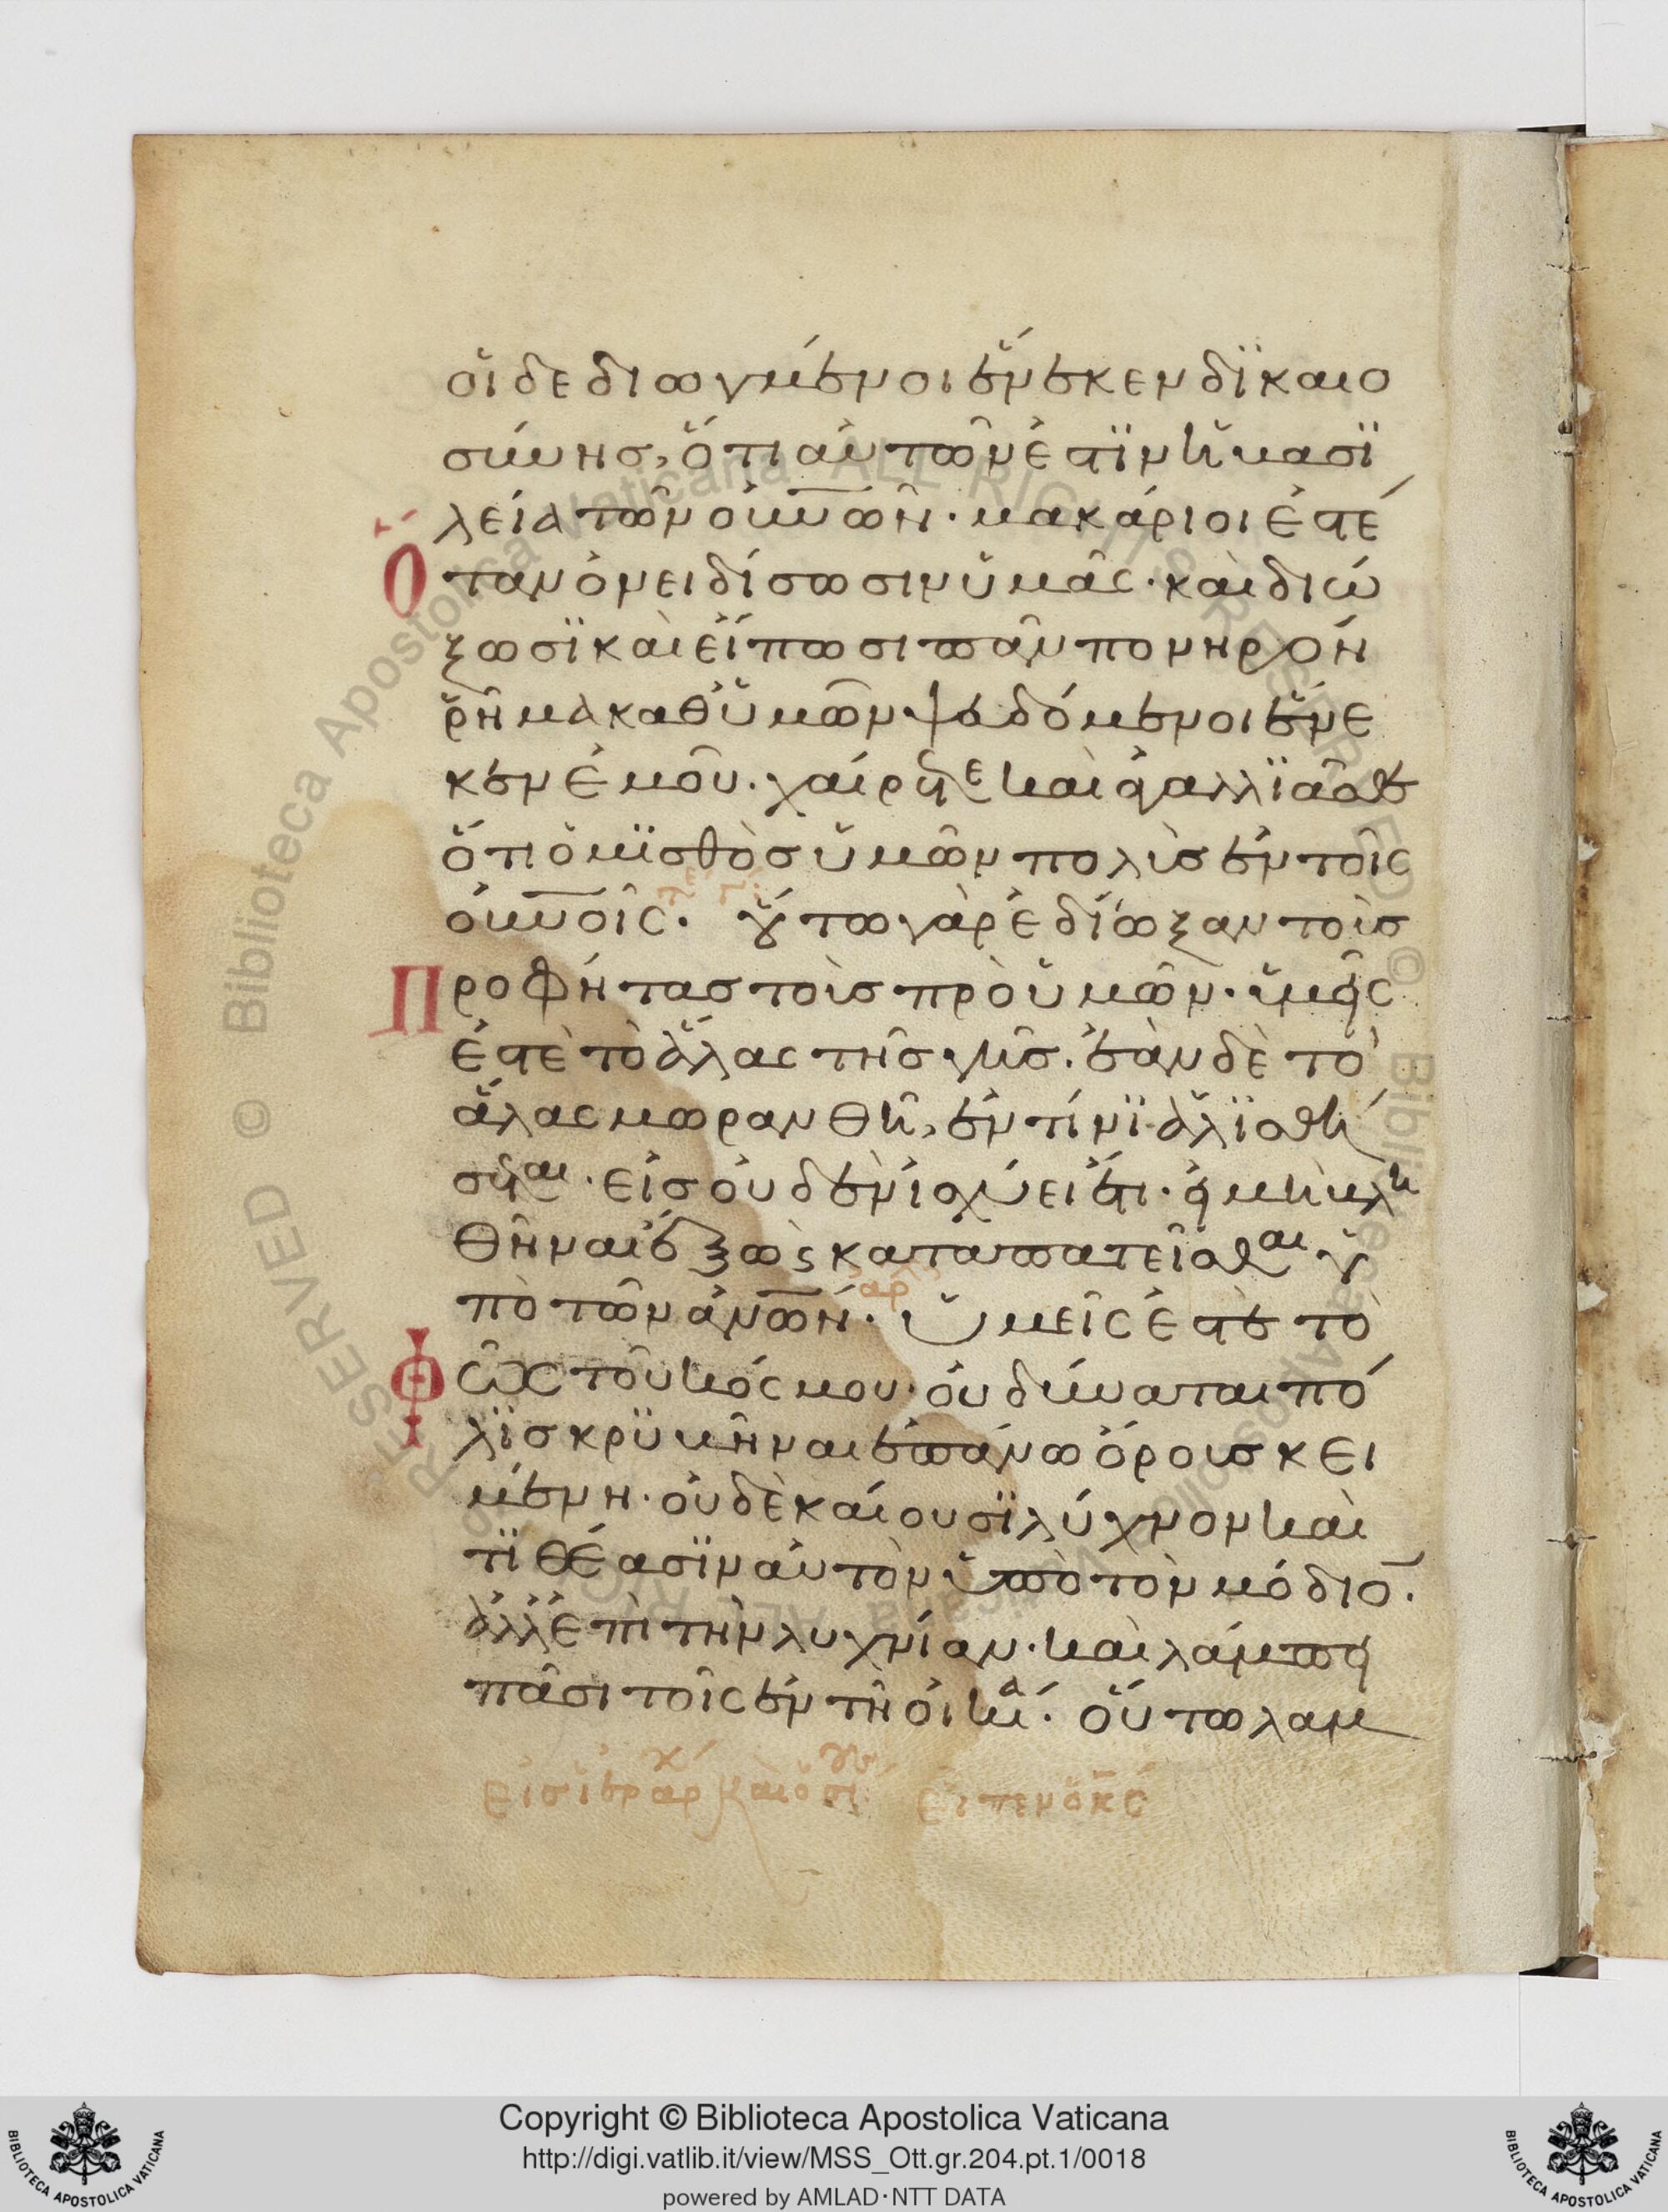 οἱ δεδιωγμένοι ἕνεκεν δϊκαιο
σύνης, ὅτι αὐτῶν ἐστϊν ἡ βασϊ
λεία τῶν οὐνῶν· μακάριοί ἐστέ
Ὅταν ὀνειδίσωσιν ὑμᾶς· καὶ διώ
ξωσϊ καὶ εἴπωσι πᾶν πονηρὸν
ῥῆμα καθ' ὑμῶν ψευδόμενοι ἕνε
κεν ἐμοῦ. χαίρετε καὶ ἀγαλλϊᾶσθε
ὅτι ὁ μϊσθὸς ὑμῶν πολὺς ἐν τοῖς
οὐνοῖς. οὕτω γὰρ ἐδίωξαν τοὺς
Προφήτας τοὺς πρὸ ὑμῶν· ὑμεῖς
ἐστὲ τὸ ἅλας τῆς γῆς. ἐὰν δὲ τὸ
ἅλας μωρανθῆ, ἐν τίνϊ ἁλϊσθή
σεται· εἰς οὐδὲν ἰσχύει ἔτι· εἰ μὴ βλη
θῆναι ἔξω ς καταπατεῖσθαι ὑ
πὸ τῶν ἀνῶν· Ὑμεῖς ἐστὲ τὸ
Φῶς τοῦ κόσμου· οὐ δύναται πό
λϊς κρϋβῆναι ἐπάνω ὄρους κει
μένη· οὐδὲ καίουσϊ λύχνον καὶ
τϊθέασϊν αὐτὸν ὑπὸ τὸν μόδιο̄.
ἀλλ' ἐπὶ τὴν λυχνίαν· καὶ λάμπει
πᾶσι τοῖς ἐν τῆ οἰκία· οὕτω λαμ
εἶπεν ὁ κ̅ς
Copyright © Biblioteca Apostolica Vaticana
http://digi.vatlib.it/view/MSS_Ott.gr.204.pt.1/0018
powered by AMLAD·NTT DATA
BIBLIOTECA APOSTOLICA VATICANA
BIBLIOTECA APOSTOLICA VATICANA